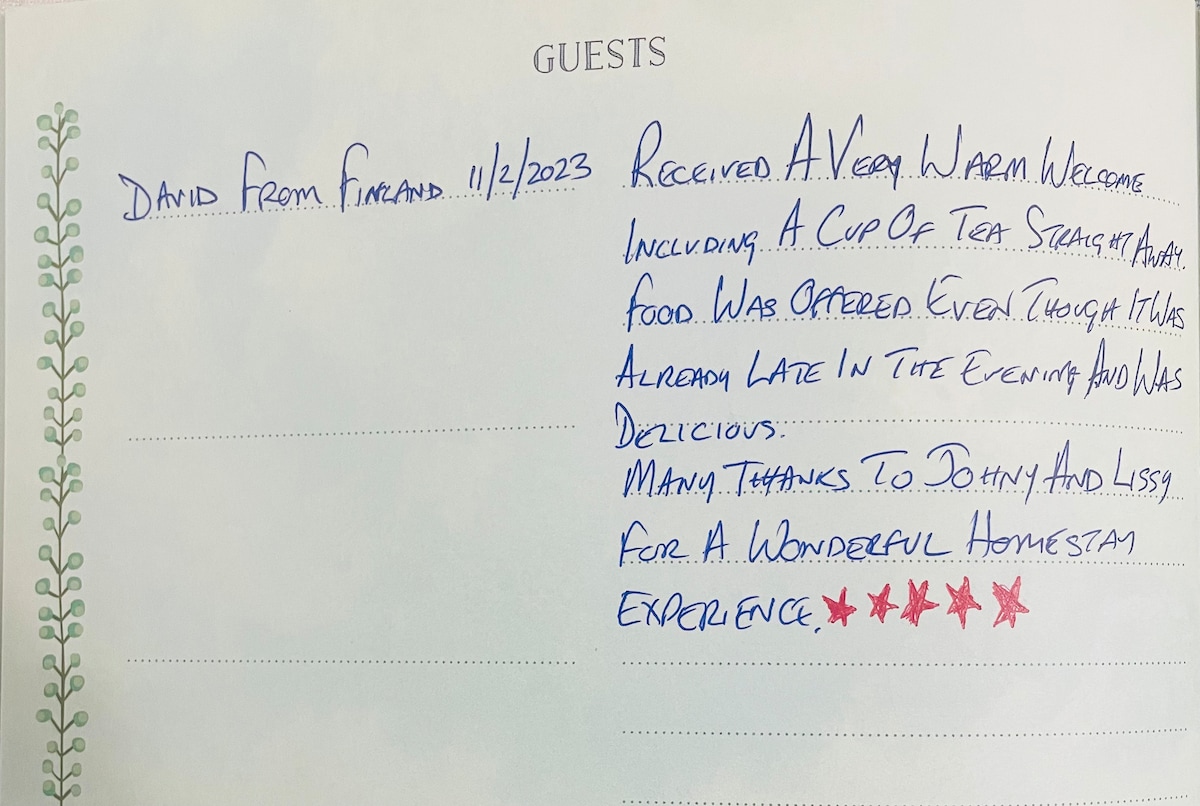 GUESTS
DAVID FROM FINLAND 11/2/2023
RECEIVED A VERY WARM WELCOME
INCLUDING A CUP OF TEA STRAIGHT AWAY.
FOOD WAS OFFERED EVEN THOUGH IT WAS
ALREADY LATE IN THE EVENING AND WAS
DELICIOUS.
MANY THANKS TO JOHNY AND LISSY
FOR A WONDERFUL HOMESTAY
EXPERIENCE.